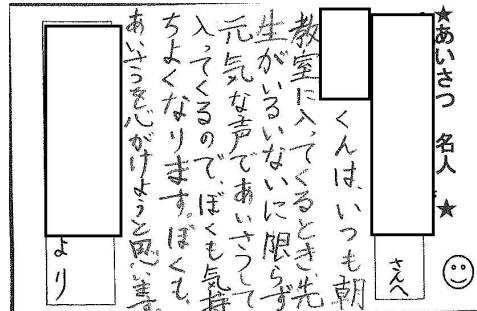 ★あいさつ 名人★
さんへ
くんは、いつも朝
教室に入ってくるとき、先
生がいるいないに限らず
元気な声であいさつして
入ってくるので、ぼくも気持
ちよくなります。ぼくも、
あいさつを心がけようと思います。
より